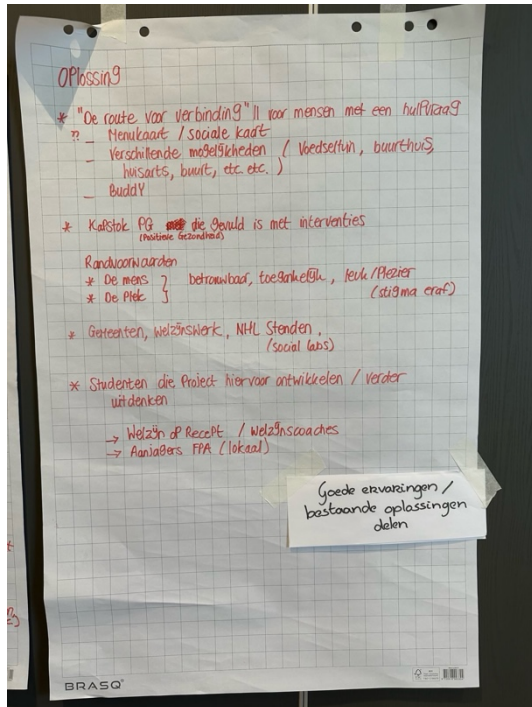 OPlossing
* "De route voor verbinding" || voor mensen met een hulpvraag
?? _ Menukaart / sociale kaart
_ Verschillende mogelijkheden ( Voedseltuin, buurthuis,
huisarts, buurt, etc. etc. )
_ Buddy
* Kapstok PG die gevuld is met interventies
(Positieve Gezondheid)
Randvoorwaarden
* De mens } betrouwbaar, toegankelijk, leuk/Plezier
* De Plek (stigma eraf)
* Gemeenten, Welzijnswerk, NHL Stenden,
(social labs)
* Studenten die Project hiervoor ontwikkelen / verder
uitdenken
→ Welzijn op Recept / Welzijnscoaches
→ Aanjagers FPA (lokaal)
Goede ervaringen /
bestaande oplossingen
delen
BRASQ